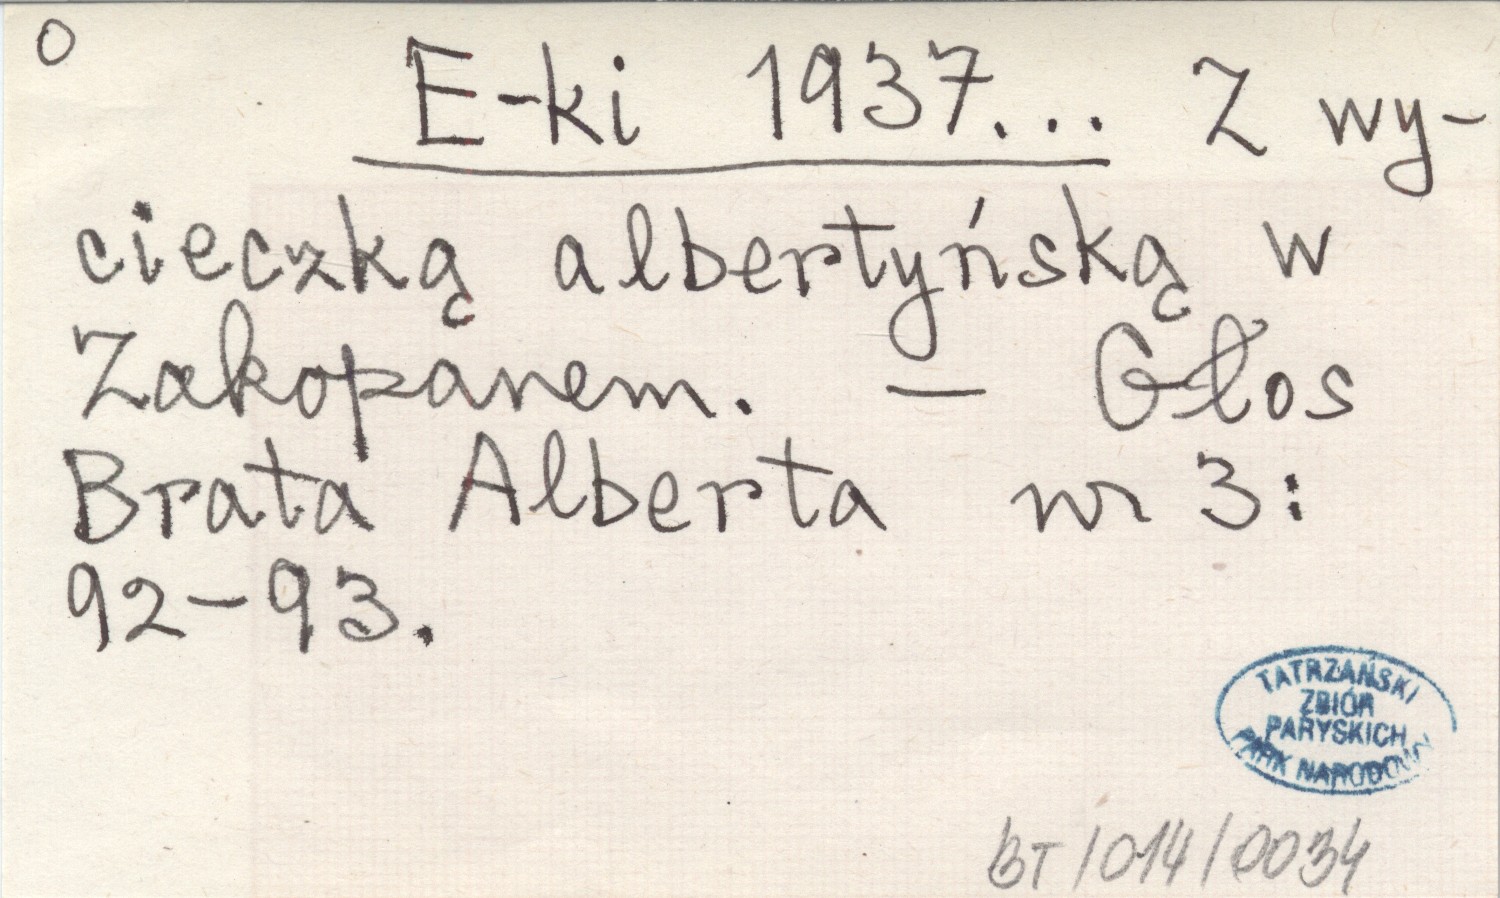 O
E-ki 1937... Z wy-
cieczką albertyńską w
Zakopanem. — Głos
Brata Alberta nr 3:
92-93.
TATRZAŃSKI
ZBIÓR
PARYSKICH
PARK NARODOWY
BT/014/0034